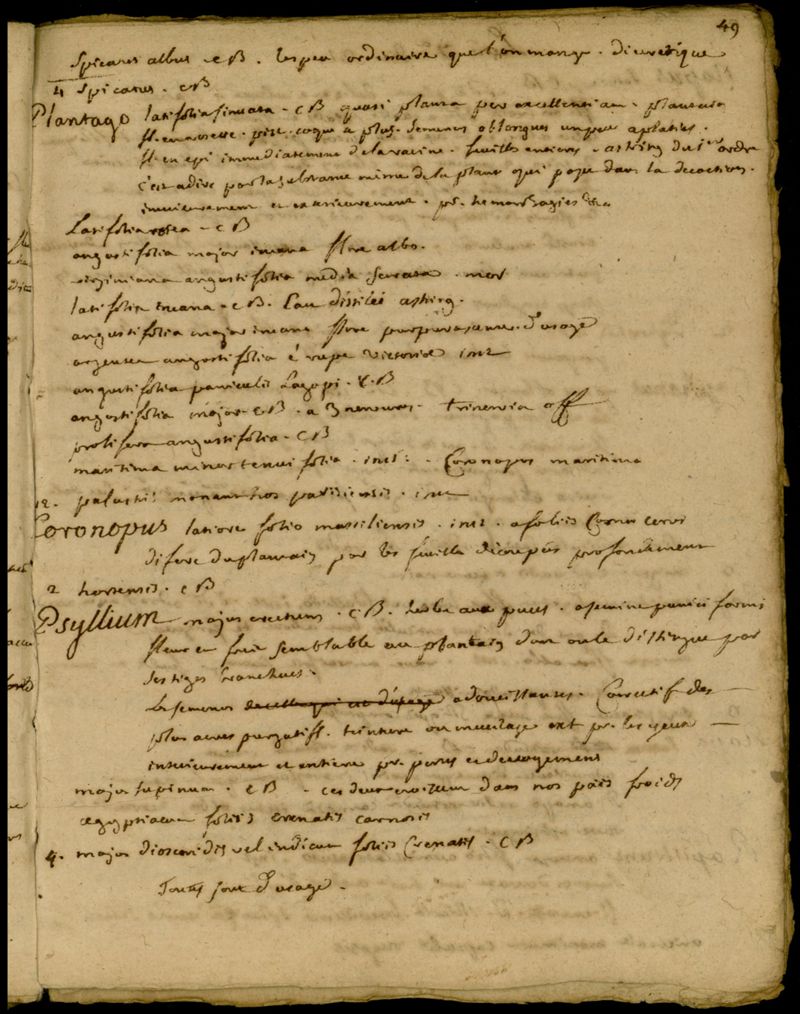 49
Spicatus albus. CB. l'espece ordinaire que l'on mange. diuretique
4 Spicatus. CB
Plantago latifolia sinuata. CB quasi planta per excellentiam. plantain
fl. en rosette. pist. coque a plus. semences oblongues un peu aplaties.
fl. en epi immediatement de la racine. feuilles entieres. astring. du 1er ordre
c'est a dire par la substance meme de la plante qui passe dans la decoction.
interieurement et exterieurement. pr. hemorragies &a
Latifolia rosea. CB
angustifolia major incana flore albo.
virginiana angustifolia media serrata. mor
latifolia incana. CB. Eau distilée astring.
angustifolia major incana flore purpurascente. d'usage
argentea angustifolia è rupe victoriae inst
angustifolia paniculis lagopi. CB
angustifolia major. CB. a 3 nervures. trinervia off
prolifera angustifolia. CB
maritima minor tenuifolia. inst. Coronopus maritima
12. palustris monanthos parisiensis. inst
Coronopus latiore folio massiliensis. inst. a foliis Cornu cervi
difere du plantain par les feuilles decoupées profondement
2 hortensis. CB
Psyllium majus erectum. CB. herbe aux puces. a semine pulici formi
fleur et fruit semblable au plantain dont on le distingue par
ses tiges branchues.
Les semences de celle qui est d'usage adoucissantes. Correctif des
plus acres purgatifs. teinture ou mucilage ext. pr. les yeux
interieurement et entiere pr. pertes et devoyemens
majus supinum. CB. ces deux croissent dans nos païs froids
aegyptiacum foliis crenatis carnosis
4. majus dioscoridis vel indicum foliis Crenatis. CB
Toutes sont d'usage.